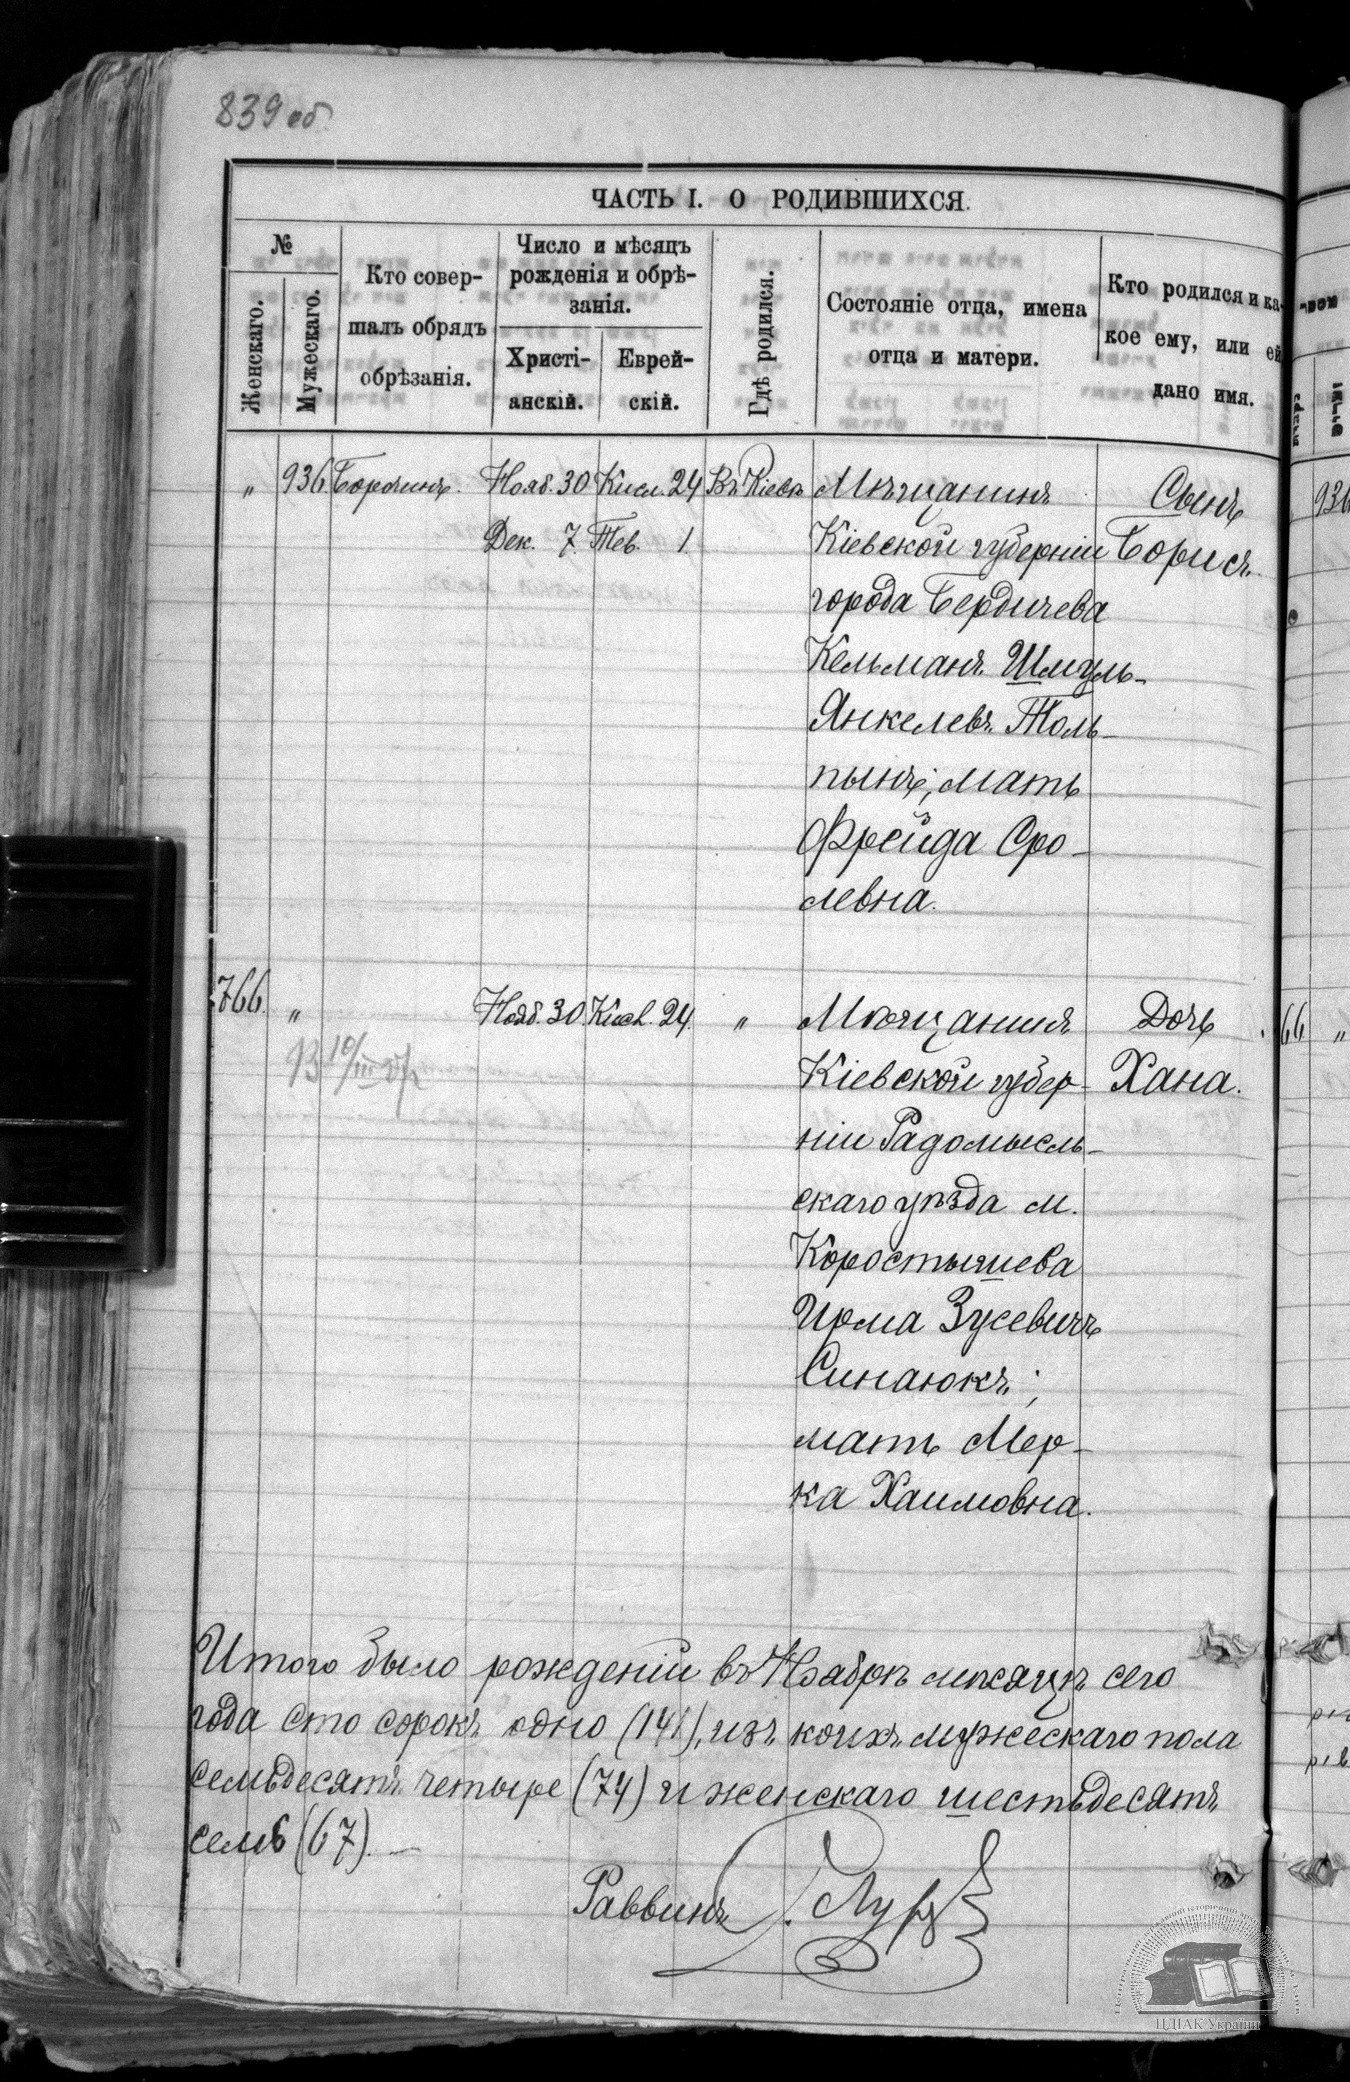 839 об.
ЧАСТЬ I. О РОДИВШИХСЯ.
№
Женскаго.
Мужескаго.
Кто совер-
шалъ обрядъ
обрѣзанія.
Число и мѣсяцъ
рожденія и обрѣ-
занія.
Христі-
анскій.
Еврей-
скій.
Гдѣ родился.
Состояніе отца, имена
отца и матери.
Кто родился и ка-
кое ему, или ей
дано имя.
„ 936 Нояб. 30 Кисл. 24 Въ Кіевѣ Мѣщанинъ Сынъ 936
Дек. 7. Тев. 1. Кіевской губерніи Борисъ.
города Бердичева
Кельманъ Шмуль-
Янкелевъ Толь-
пынъ; мать
Фрейда Сро-
левна.
766. „ Нояб. 30 Кисл. 24. „ Мѣщанинъ Дочь 66 „
Кіевской губер- Хана.
ніи Радомысль-
скаго уѣзда м.
Коростышева
Ирма Зусевичъ
Синаюкъ;
мать Мер-
ка Хаимовна.
Итого было рожденій въ Ноябрѣ мѣсяцѣ сего
года сто сорокъ одно (141), изъ коихъ мужескаго пола
семьдесятъ четыре (74) и женскаго шестьдесятъ
семь (67). —
Раввинъ Лурье
ЦДІАК України